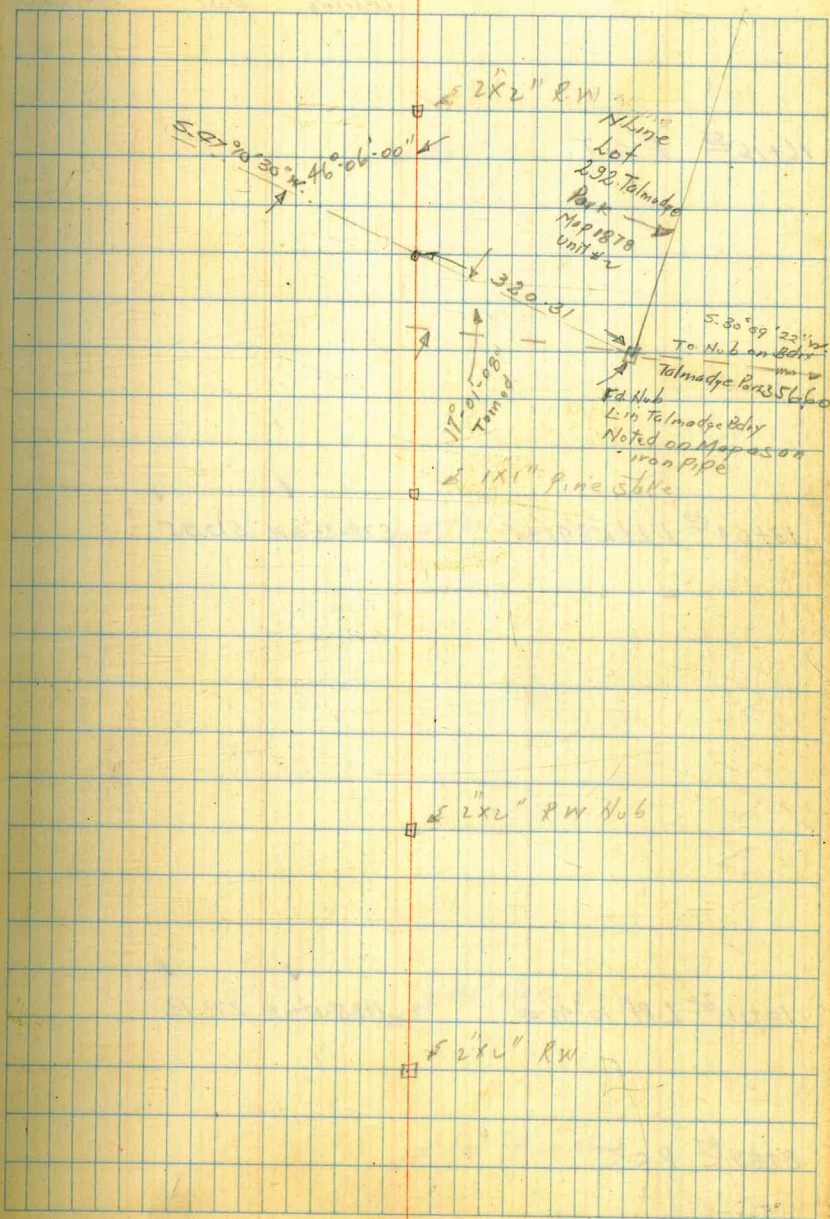 2"x2" R.W
S-47°10'30"W.
46°-06'-00"
N Line
Lot
292 Talmadge
Park
Map 1878
Unit #2
320.31
S-30°09'22"W.
To Hub on Bdry
Talmadge Park 356.60
17°-01'-08"
Turned
Fd. Hub
L in Talmadge Bdry
Noted on Map as an
iron Pipe
1"x1" pine stake
2"x2" R W Hub
2"x2" RW